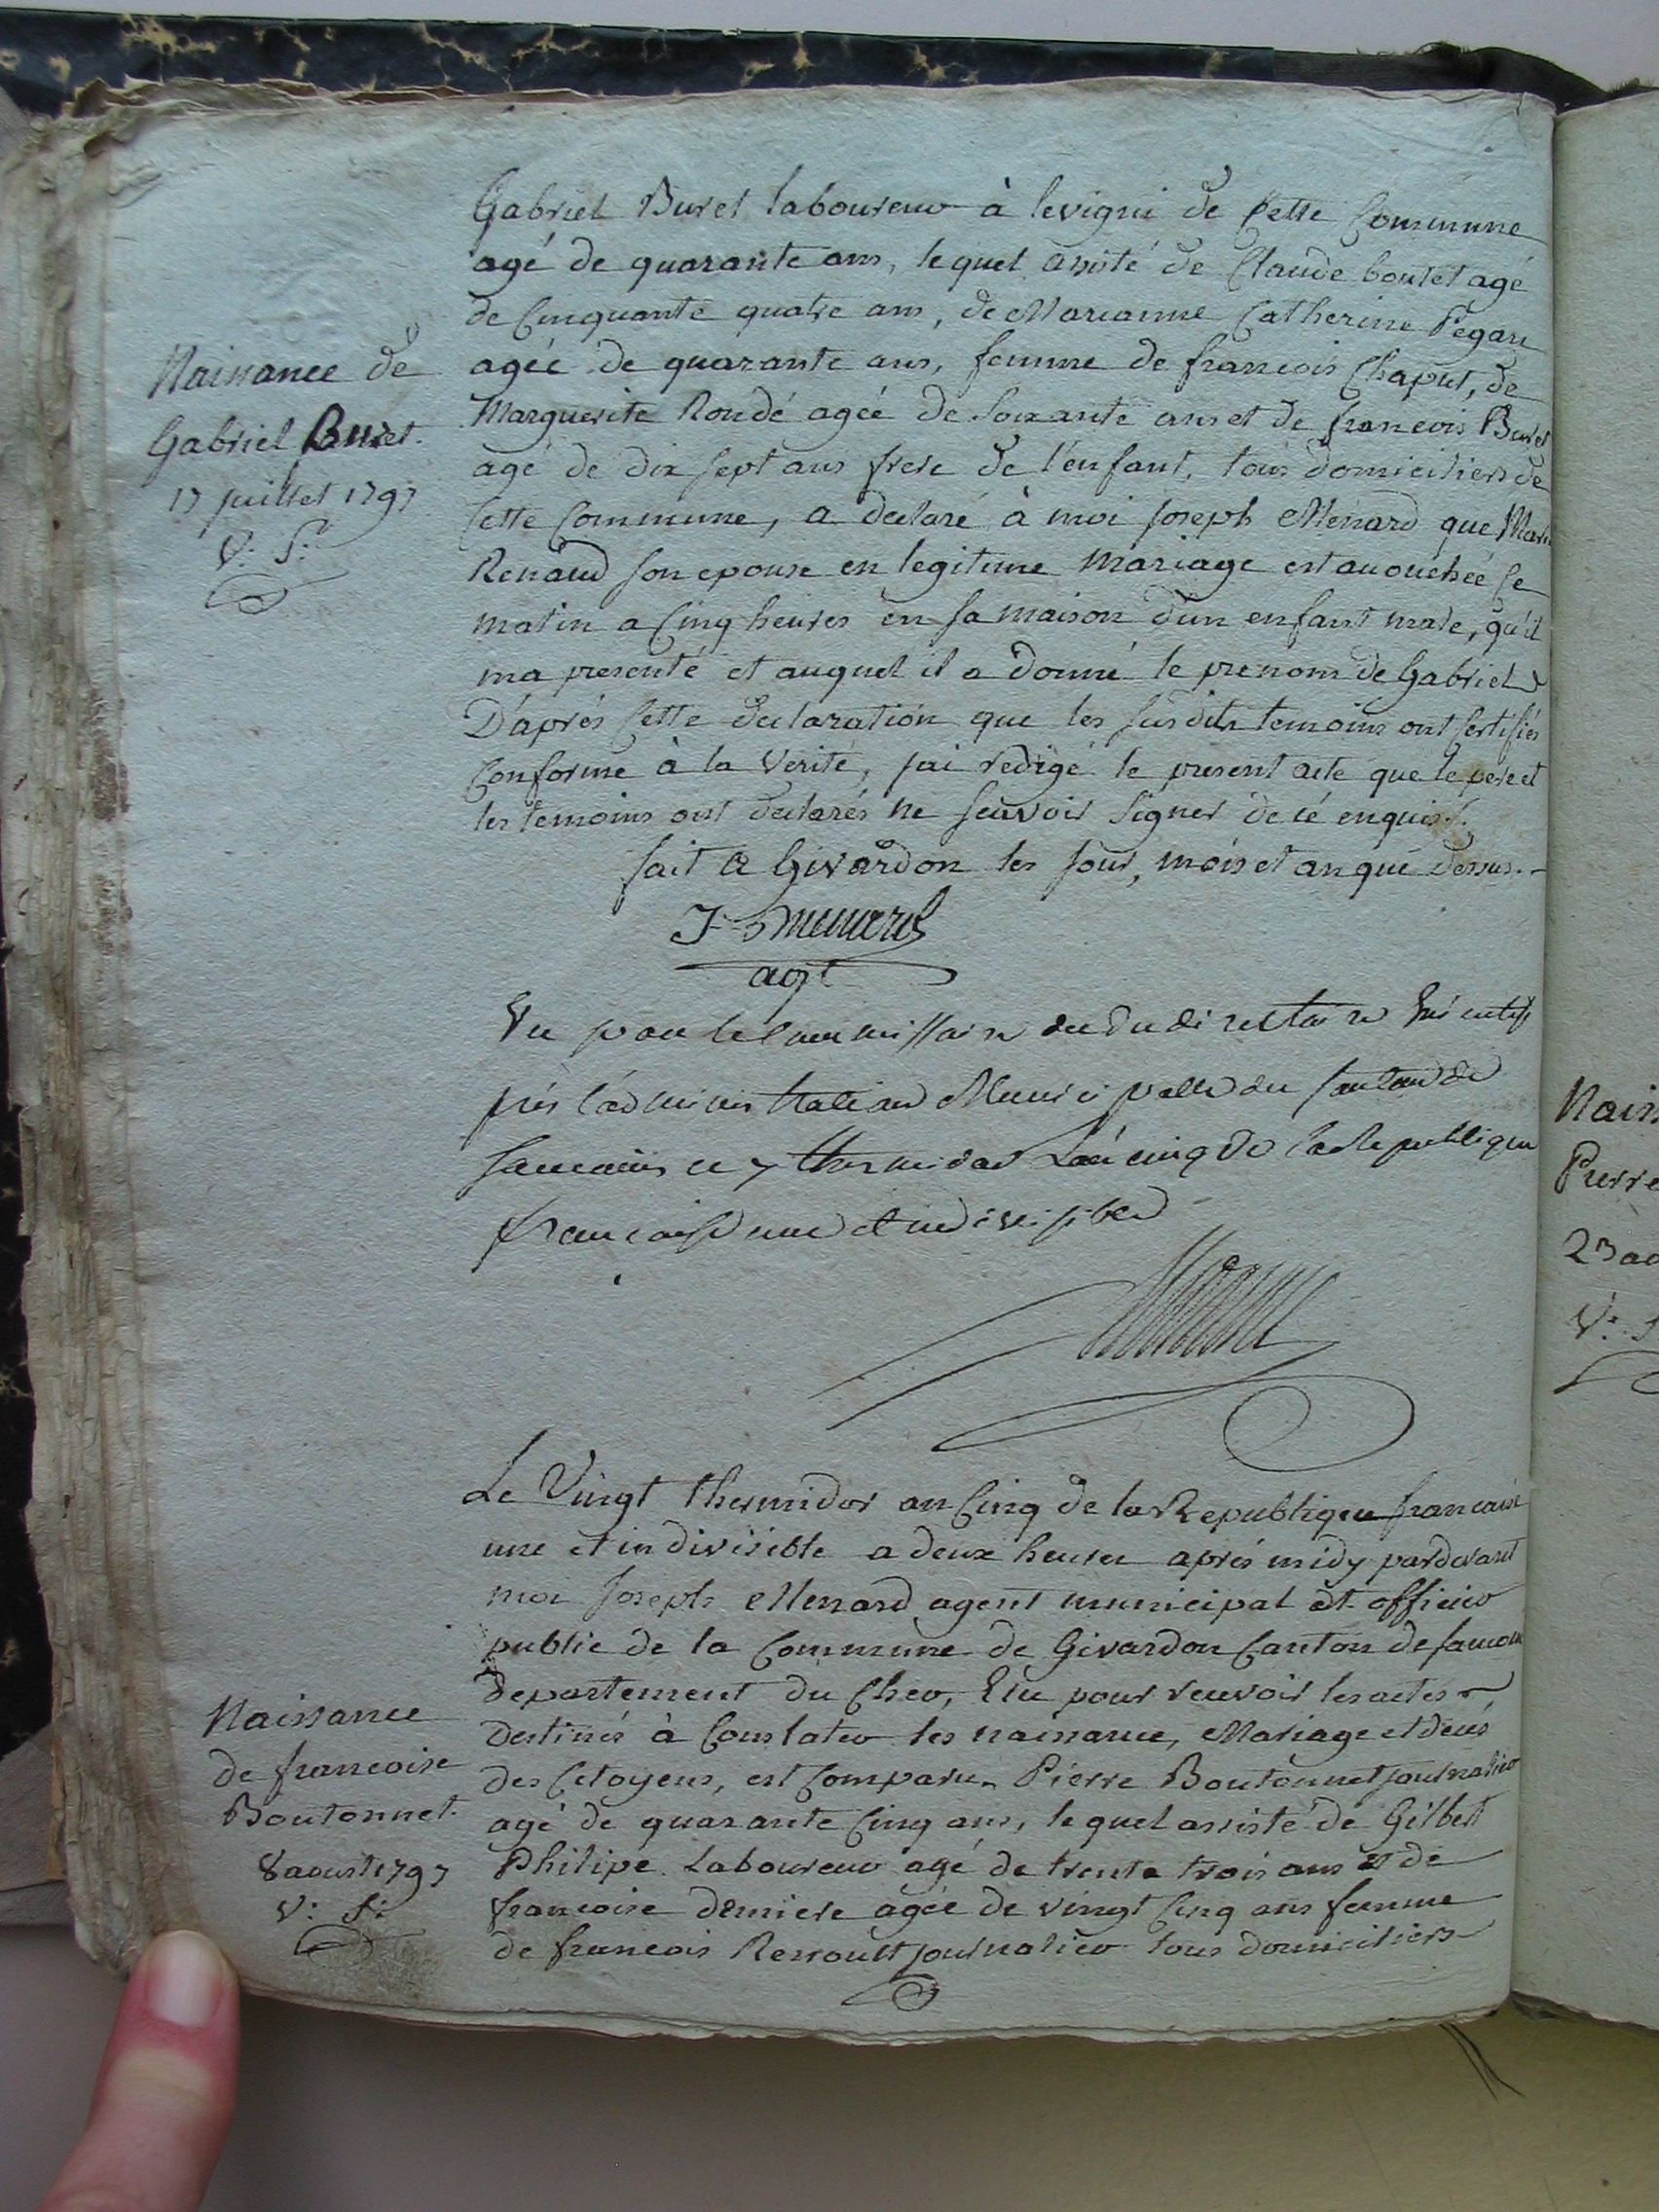 Gabriel Buret laboureur à levigni de Cette Commune
agé de quarante ans, lequel assisté de Claude boulet agé
de Cinquante quatre ans, de Marianne Catherine
Naissance de
agée de quarante ans, femme de francois Chaput, de
Marguerite Rondé agée de Soixante ans et de francois Buret
Gabriel Buret.
agé de dix sept ans frere de l'enfant, tous domiciliers de
17 juillet 1797
Cette Commune, a declaré à moi Joseph Menard que Marie
V: S:
Renaud Son epouse en legitime Mariage est accouchée Ce
matin a Cinq heures en Sa maison d'un enfant male, qu'il
ma presenté et auquel il a donné le prenom de Gabriel
D'aprés Cette declaration que les Susdits temoins ont Certifiés
Conforme à la Verité, jai redigé le present acte que le pere et
les temoins ont declarés ne Scavoir Signer de cé enquis.
fait a Givardon les jour, mois et an que dessus.
J Menard
agt
Vu par le Commissaire du directoire Executif
prés l'administration Municipalle du Canton de
Sancoins ce 7 thermidor L'an cinq de la Republique
francaise une et indivisible
Le Vingt thermidor an Cinq de la Republique francaise
une et indivisible a deux heures aprés midy pardevant
moi Joseph Menard agent municipal et officier
public de la Commune de Givardon Canton de Sancoins
departement du Cher, Elu pour recevoir les actes
Naissance
destinés à Constater les naissance, Mariage et decés
de francoise
des Citoyens, est Comparu Pierre Boutonnet journalier
Boutonnet.
agé de quarante Cinq ans, lequel assisté de Gilbert
8 aoust 1797
Philipe Laboureur agé de trente trois ans et de
V: S:
francoise demiere agée de vingt Cinq ans femme
de francois Renoult journalier tous domiciliers
Naiss
Pierre
23 ao
V: S